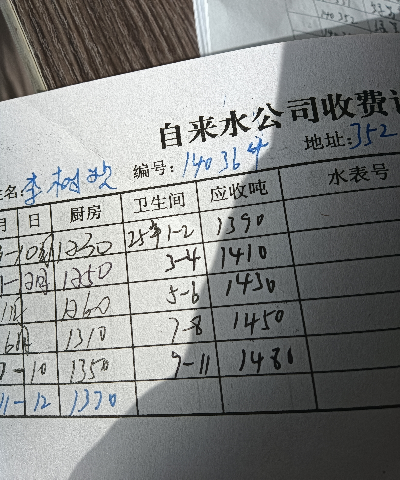 自来水公司收费
名:李树欢 编号:140364 地址:352
月 日 厨房 卫生间 应收吨 水表号
-10月 1230 25年1-2 1390
1-12月 1250 3-4 1410
1260 5-6 1430
1310 7-8 1450
-10 1350 9-11 1480
11-12 1370